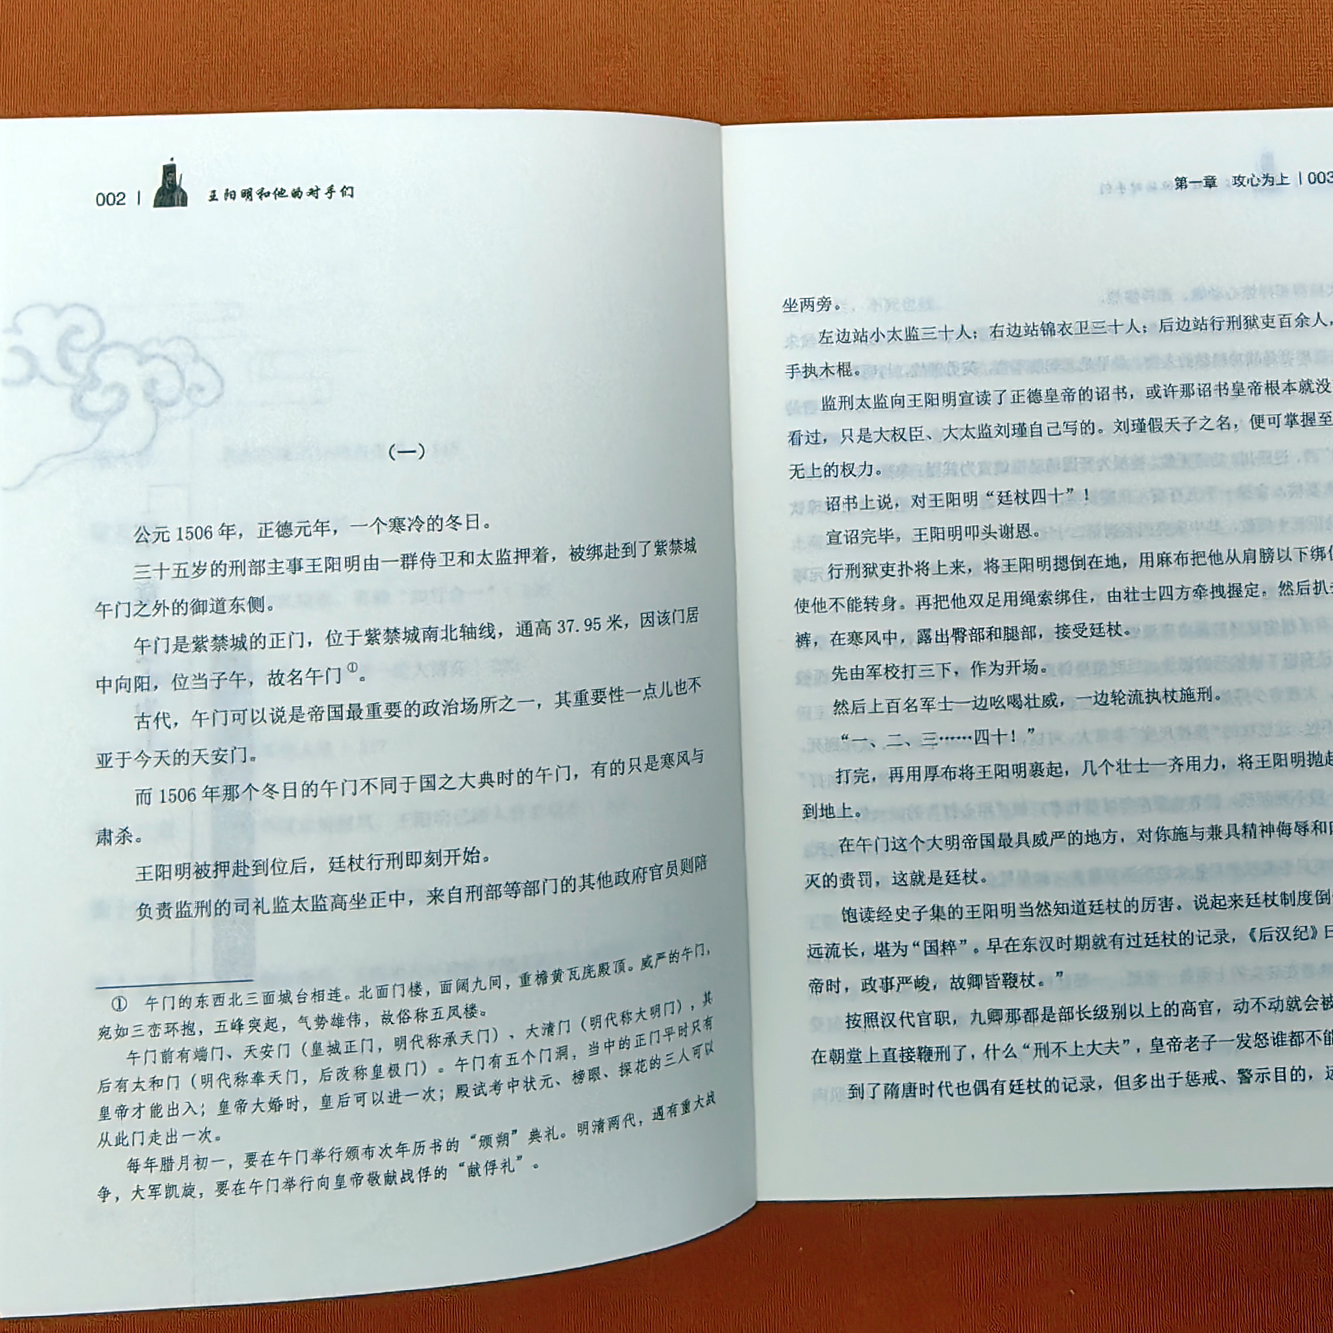 002 | 王阳明和他的对手们
（一）
公元 1506 年，正德元年，一个寒冷的冬日。
三十五岁的刑部主事王阳明由一群侍卫和太监押着，被绑赴到了紫禁城
午门之外的御道东侧。
午门是紫禁城的正门，位于紫禁城南北轴线，通高 37.95 米，因该门居
中向阳，位当子午，故名午门①。
古代，午门可以说是帝国最重要的政治场所之一，其重要性一点儿也不
亚于今天的天安门。
而 1506 年那个冬日的午门不同于国之大典时的午门，有的只是寒风与
肃杀。
王阳明被押赴到位后，廷杖行刑即刻开始。
负责监刑的司礼监太监高坐正中，来自刑部等部门的其他政府官员则陪
① 午门的东西北三面城台相连。北面门楼，面阔九间，重檐黄瓦庑殿顶。威严的午门，
宛如三峦环抱，五峰突起，气势雄伟，故俗称五凤楼。
午门前有端门、天安门（皇城正门，明代称承天门）、大清门（明代称大明门），其
后有太和门（明代称奉天门，后改称皇极门）。午门有五个门洞，当中的正门平时只有
皇帝才能出入；皇帝大婚时，皇后可以进一次；殿试考中状元、榜眼、探花的三人可以
从此门走出一次。
每年腊月初一，要在午门举行颁布次年历书的“颁朔”典礼。明清两代，遇有重大战
争，大军凯旋，要在午门举行向皇帝敬献战俘的“献俘礼”。
第一章 攻心为上 | 003
坐两旁。
左边站小太监三十人；右边站锦衣卫三十人；后边站行刑狱吏百余人，
手执木棍。
监刑太监向王阳明宣读了正德皇帝的诏书，或许那诏书皇帝根本就没
看过，只是大权臣、大太监刘瑾自己写的。刘瑾假天子之名，便可掌握至
无上的权力。
诏书上说，对王阳明“廷杖四十”！
宣诏完毕，王阳明叩头谢恩。
行刑狱吏扑将上来，将王阳明摁倒在地，用麻布把他从肩膀以下绑住
使他不能转身。再把他双足用绳索绑住，由壮士四方牵拽握定，然后扒
裤，在寒风中，露出臀部和腿部，接受廷杖。
先由军校打三下，作为开场。
然后上百名军士一边吆喝壮威，一边轮流执杖施刑。
“一、二、三……四十！”
打完，再用厚布将王阳明裹起，几个壮士一齐用力，将王阳明抛起
到地上。
在午门这个大明帝国最具威严的地方，对你施与兼具精神侮辱和
灭的责罚，这就是廷杖。
饱读经史子集的王阳明当然知道廷杖的厉害。说起来廷杖制度倒
远流长，堪为“国粹”。早在东汉时期就有过廷杖的记录，《后汉纪》曰
帝时，政事严峻，故卿皆鞭杖。”
按照汉代官职，九卿那都是部长级别以上的高官，动不动就会被
在朝堂上直接鞭刑了，什么“刑不上大夫”，皇帝老子一发怒谁都不能
到了隋唐时代也偶有廷杖的记录，但多出于惩戒、警示目的，远